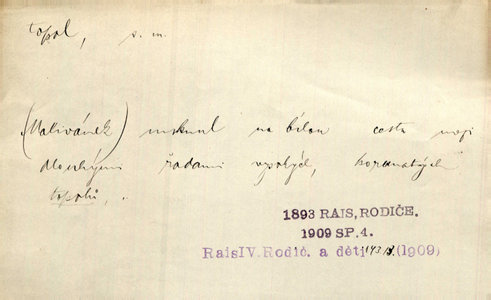 topol, s. m.
(Malivánek) mrknul na bílou cestu mezi
dlouhými řadami vysokých, kornatých
topolů, .
1893 RAIS, RODIČE.
1909 SP. 4.
Rais IV. Rodič. a děti (1909)